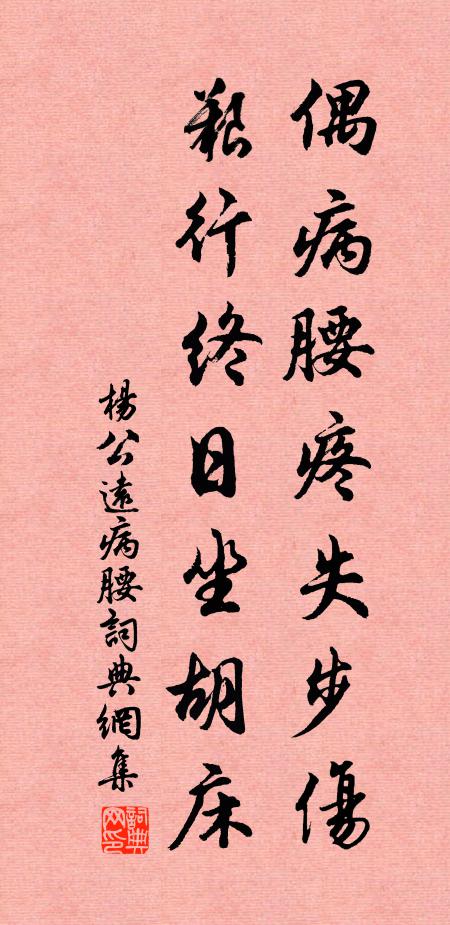 偶病腰疼失步傷
艱行終日坐胡床
楊公遠病腰詞典網集
詞典網印